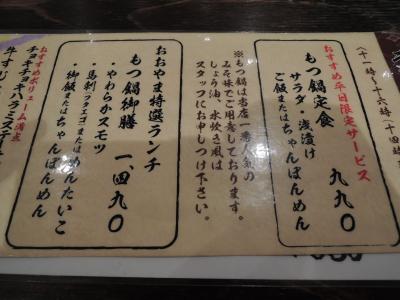 おすすめ平日限定サービス
もつ鍋定食 九九〇
サラダ・浅漬け
ご飯またはちゃんぽんめん
※もつ鍋は当店一番人気の
みそ味でご用意しております。
しょう油、水炊き風は
スタッフにお申しつけ下さい。
おおやま特選ランチ
もつ鍋御膳 一、四九〇
・やわらかスモツ
・馬刺
またはめんたいこ
・御飯またはちゃんぽんめん
おすすめボリューム満点